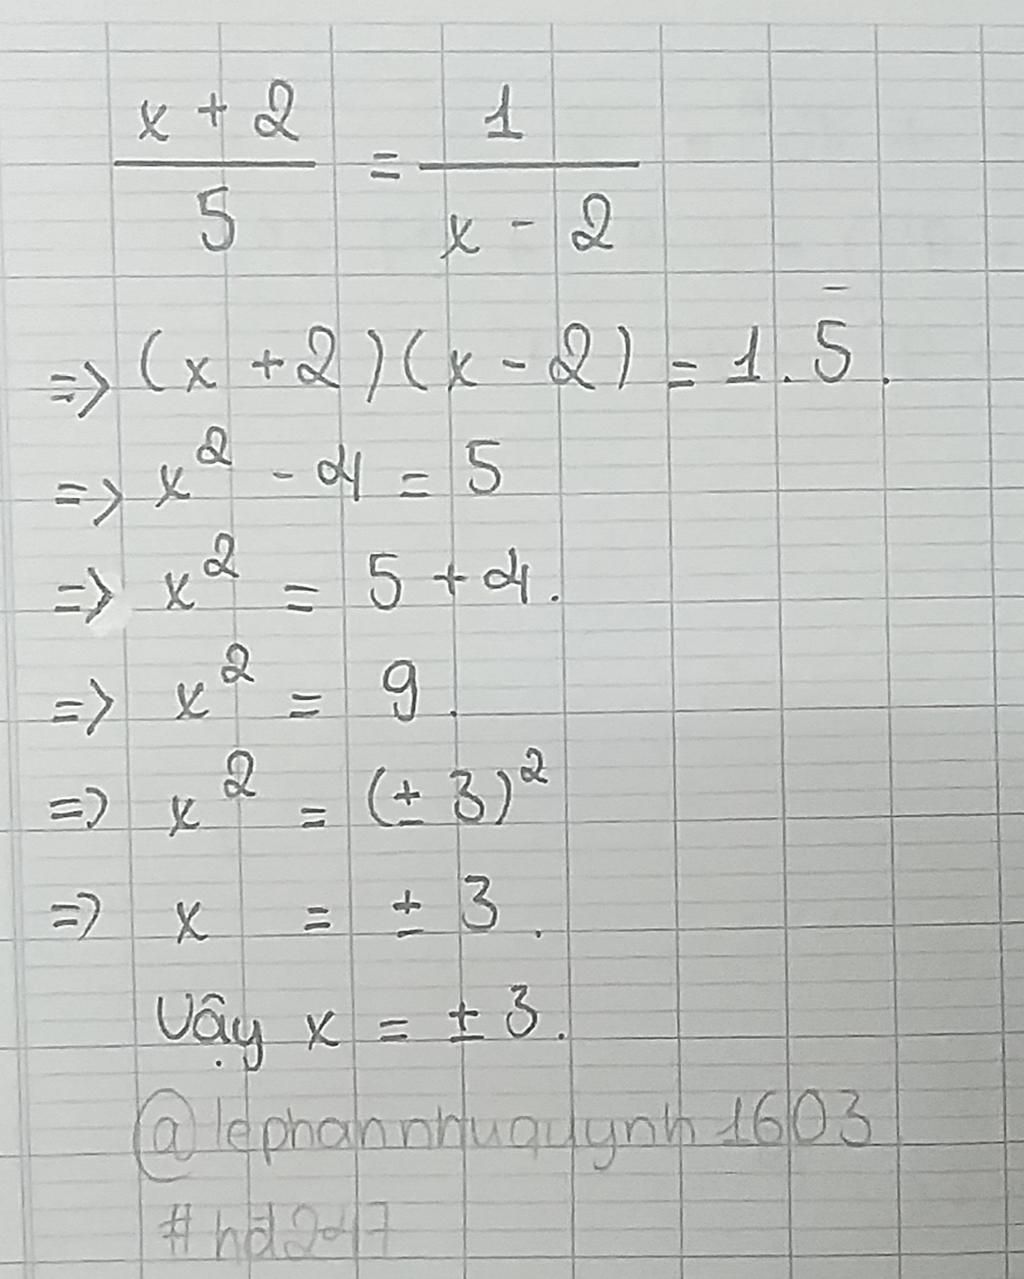 x + 2 / 5 = 1 / x - 2
=> (x + 2)(x - 2) = 1.5.
=> x² - 4 = 5
=> x² = 5 + 4.
=> x² = 9.
=> x² = (± 3)²
=> x = ± 3.
Vậy x = ± 3.
@lephannhuquynh1603
#hd247